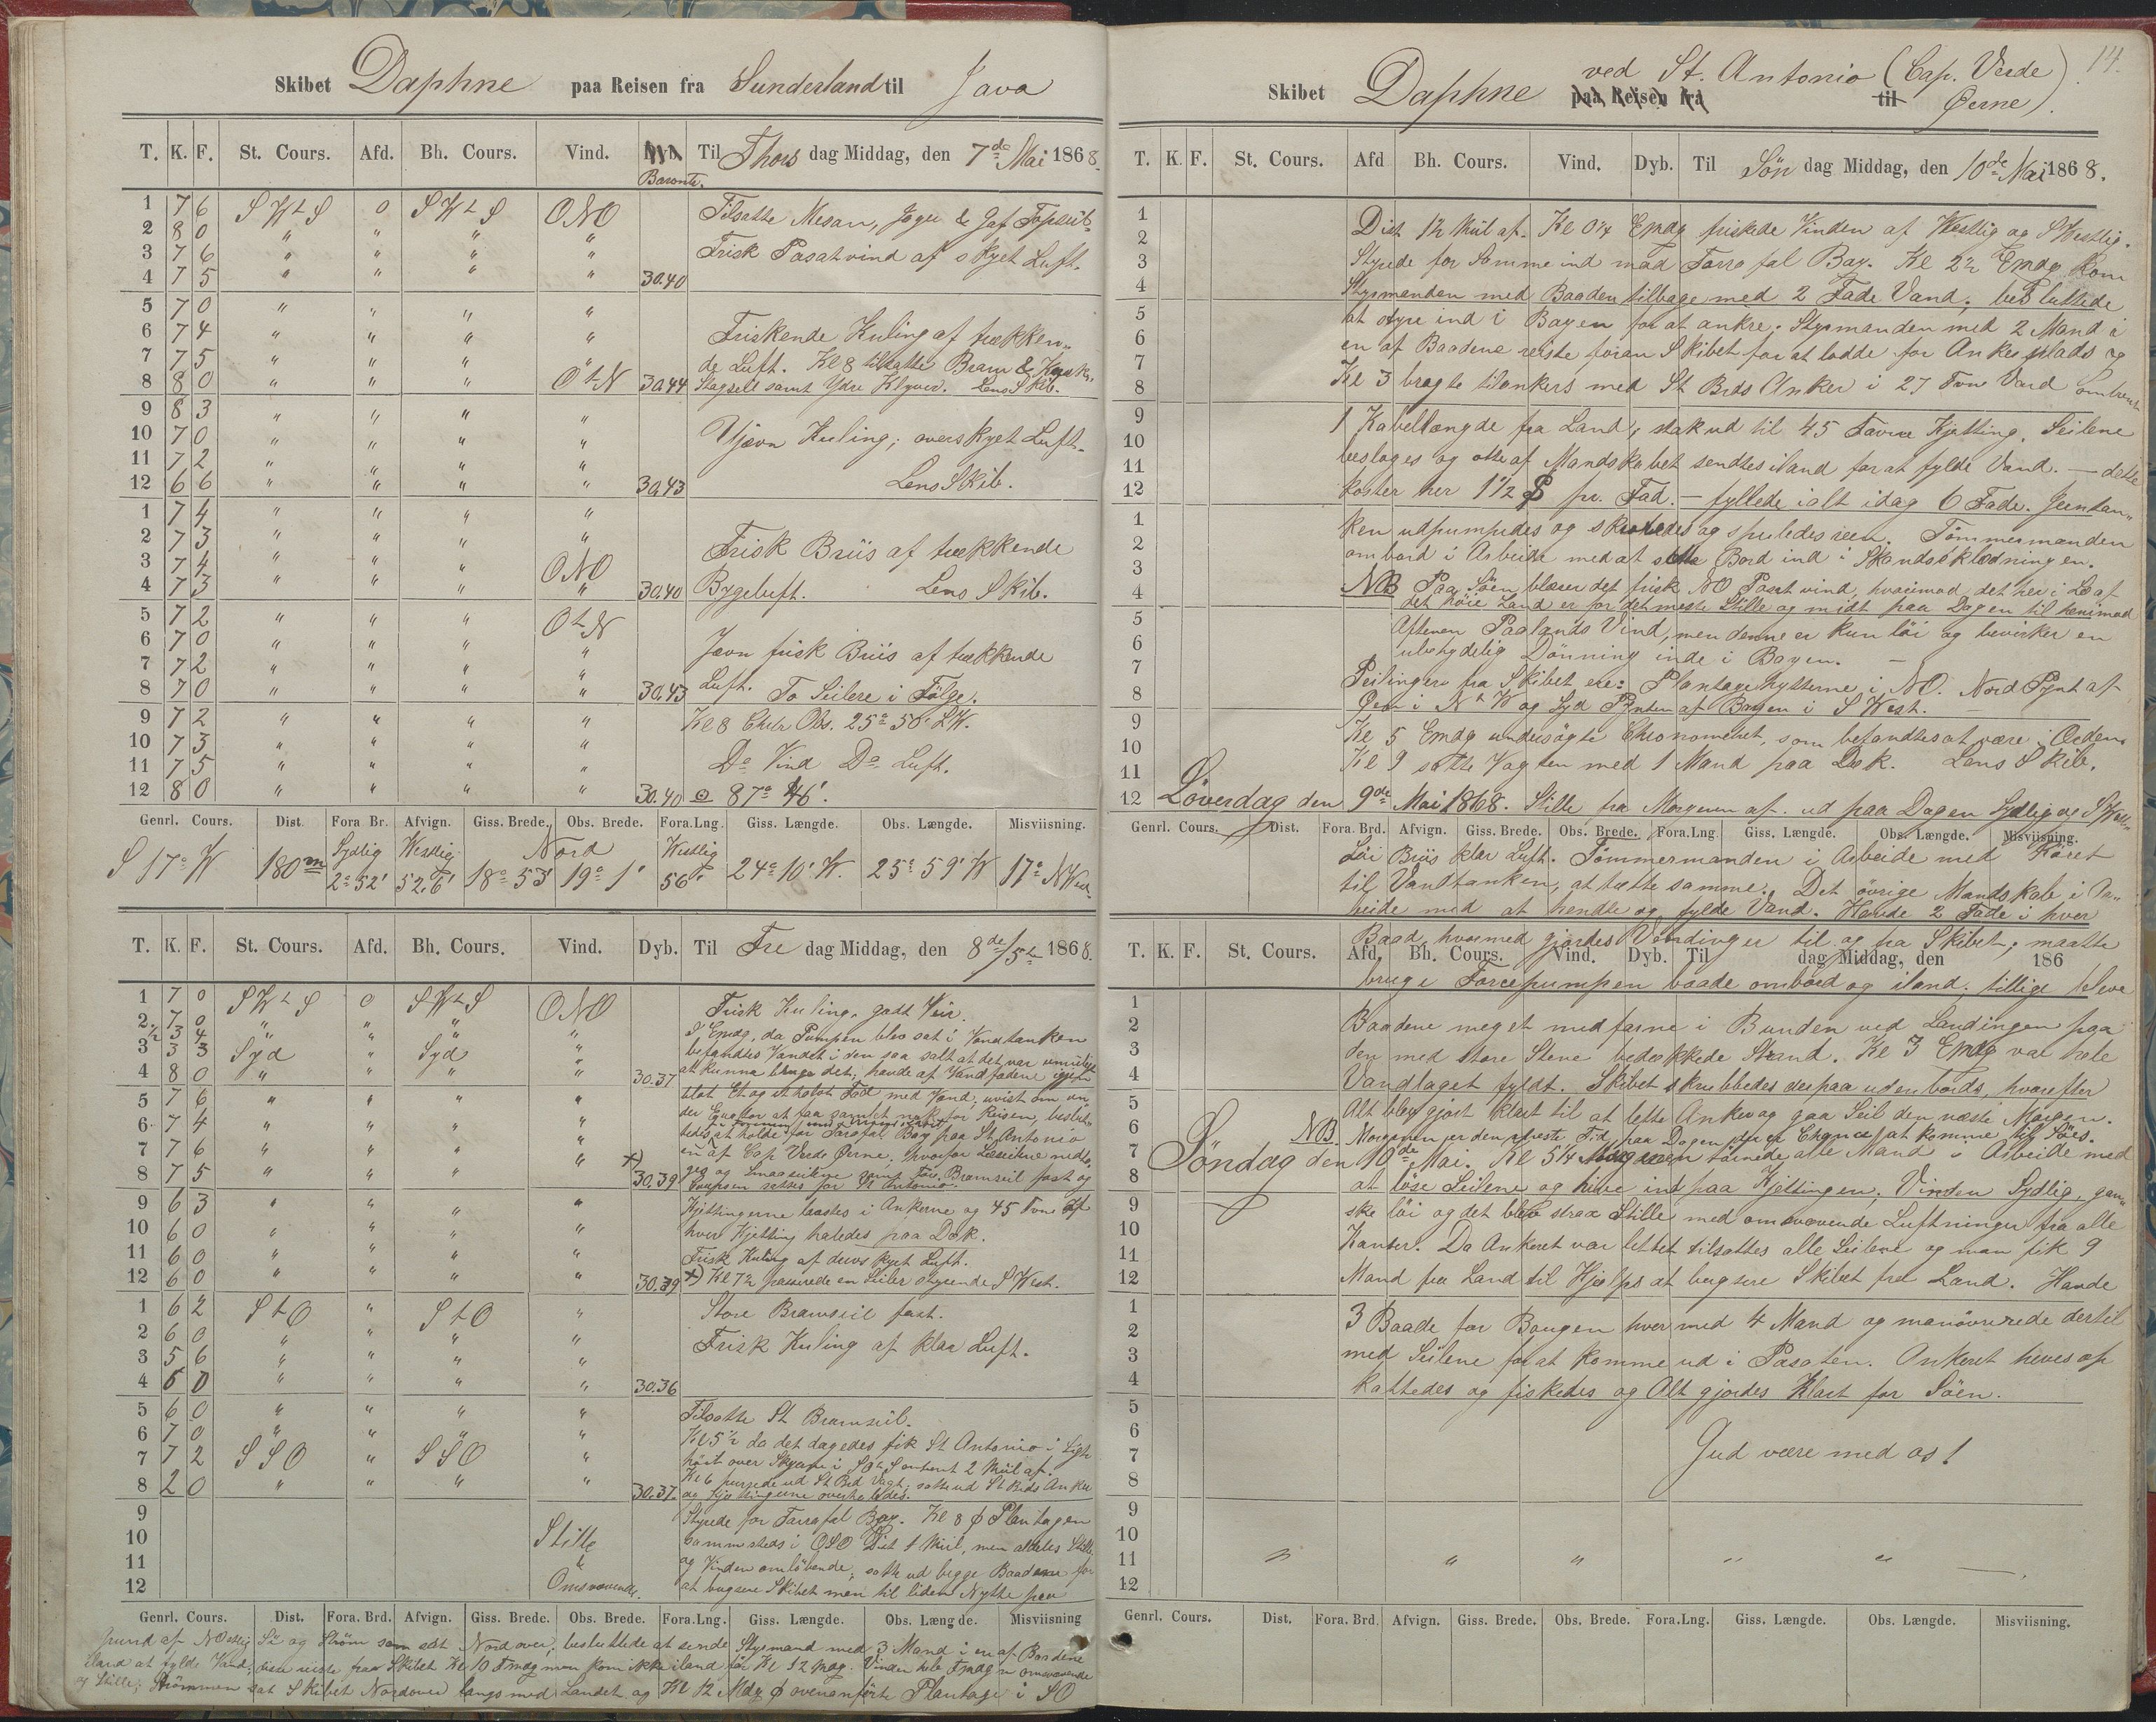 Skibet Daphne paa Reisen fra Sunderland til Java
T. K. F. St. Cours. Afd. Bh. Cours. Vind. Dyb. Baromtr. Til Thors dag Middag, den 7de Mai 1868.
1 7 6 SWtS 0 SWtS ONO Tilsatte Mesan, Jager & Gaf Topseil.
2 8 0 " " " "
3 7 6 " " " " Frisk Pasatvind af skyet Luft.
4 7 5 " " " " 30.40
5 7 0 " " " "
6 7 4 " " " " Friskende Kuling af trækken-
7 7 5 " " " " de Luft. Kl 8 tilsatte Bram &
8 8 0 " " " OtN 30.44 Stagseil samt Ydre Klyver. Lens Skib.
9 8 3 " " " "
10 7 0 " " " " Ujævn Kuling; overskyet Luft.
11 7 2 " " " "
12 6 6 " " " " 30.43 Lens Skib.
1 7 4 " " " "
2 7 3 " " " " Frisk Briis af trækkende
3 7 4 " " " ONO
4 7 3 " " " " 30.40 Bygeluft. Lens Skib.
5 7 2 " " " OtN
6 7 0 " " " " Jævn frisk Briis af trækkende
7 7 2 " " " "
8 7 0 " " " " 30.43 Luft. To Seilere i Følge.
9 7 2 " " " " Kl 8 Obs. 25° 50' LW.
10 7 3 " " " "
11 7 5 " " " " Do Vind Do Luft.
12 8 0 " " " " 30.40 ⊙ 87° 46'.
Genrl. Cours. Dist. Fora Br. Afvign. Giss. Brede. Obs. Brede. Fora.Lng. Giss. Længde. Obs. Længde. Misviisning.
Sydlig Westlig Nord Westlig
S 17° W 180m 2° 52' 52,6' 18° 53' 19° 1' 56' 24° 10' W. 25° 59' W 17° N West
T. K. F. St. Cours. Afd. Bh. Cours. Vind. Dyb. Til Fre dag Middag, den 8de/5te 1868.
1 7 0 SWtS 0 SWtS ONO Frisk Kuling, godt Veir.
2 7 0 " " " " I Emdg, da Pumpen blev sat i Vandtanken
½ 3 4
3 3 3 Syd " Syd " befandtes Vandet i den saa salt at det var umuligt
4 8 0 " " " " 30.37 at kunne bruge det; havde af Vandfadene igjen
5 7 6 " " " " blot Et og et halvt Fad med Vand; uvist om un-
6 7 4 " " " " der Eqvator at faa samlet nok for Reisen, beslut-
tedes at holde for Tarafal Bay paa St Antonio
7 7 6 " " " " en af Cap Verds Øerne; hvorfor Læseilene
8 7 5 " " " " +) 30.39 og Smaaseilene samt For. Bramseil fast og
for St Antonio.
9 6 3 " " " " Kjettingerne lastes i Ankerne og 45 Fvn af
10 6 0 " " " " hver Kjetting haledes paa Dæk.
11 6 0 " " " " Frisk Kuling af Luft.
12 6 0 " " " " 30.39 +) Kl 7½ passerede en Seiler styrende S West.
1 6 2 StO " StO " Store Bramseil fast.
2 6 0 " " " "
3 5 6 " " " " Frisk Kuling af klar Luft.
4 6 0 " " " " 30.36
5 6 0 " " " " Tilsatte St Bramseil.
6 7 0 " " " " Kl 5½ da det dagedes fik St Antonio i Sigte
7 7 2 SSO " SSO " høit over Skyerne i omtrent 2 Miil af.
8 2 0 " " " " 30.37. Kl 6 purrede ud St Brd Vagt; satte ud St Brds Anker
og Kjettingerne
9 Styrede for Tarrafal Bay. Kl 8 ϕ Plantagen
10 Stille sammesteds i OSO Dist 1 Miil, men aldeles Stille
11 & og Vinden omløbende; satte ud begge Baadene for
12 Omsvævende. at bugsere Skibet men til liden Nytte paa
Genrl. Cours. Dist. Fora. Brd. Afvign. Giss. Brede. Obs. Brede. Fora.Lng. Giss. Længde. Obs. Længde. Misviisning
Grund af NOstlig Sø og Strøm som sat Nordover; besluttede at sende Styrmand med 3 Mand i en af Baadene
iland at fylde Vand; disse reiste fra Skibet Kl 10 Fmdg men kom ikke iland før Kl 12 Mdg. Vinden hele Fmdg omsvævende
og Stille; Strømmen sat Skibet Nordover langs med Landet og Kl 12 Mdg ϕ ovenanførte Plantage i SO
14.
Skibet Daphne ved St. Antonio (Cap. Verde
paa Reisen fra til Øerne).
T. K. F. St. Cours. Afd Bh. Cours. Vind. Dyb. Til Søn dag Middag, den 10de Mai 1868.
1 Dist 1½ Miil af. Kl 0¼ Emdg friskede Vinden af Westlig og SWestlig.
2
3 Styrede for Samme ind mod Tarrafal Bay. Kl 2½ Emdg kom
4 Styrmanden med Baaden tilbage med 2 Fade Vand; besluttede
5 at styre ind i Bayen for at ankre. Styrmanden med 2 Mand i
6 en af Baadene reiste foran Skibet for at lodde for Ankerplads og
7
8 Kl 3 bragte tilankers med St Brds Anker i 27 Fvn Vand omtrent
9 1 Kabellængde fra Land; stak ud til 45 Favne Kjetting. Seilene
10
11 beslages og otte af Mandskabet sendtes iland for at fylde Vand. — dette
12 koster her 1½ $ pr. Fad. — fyllede ialt idag 6 Fade. Jerntan-
1 ken udpumpedes og skrabedes og spuledes reen. Tømmermanden
2 ombord i Arbeide med at sætte Bord ind i Skandseklædningen.
3 NB Paa Søen blæser det frisk NO Pasat vind, hvorimod det her i Læ af
4 det høie Land er for det meste Stille og midt paa Dagen til henimod
5 Aftenen Paalands Vind, men denne er kun løi og bevirker en
6 ubetydelig Dønning inde i Bayen. —
7 Peilingen fra Skibet ere: Plantagehytterne i NO. Nord Pynt af
8 i NtW og Syd Pynten af Bayen i S West.
9 Kl 5 Emdg undersøgte Chronometret, som befandtes at være i Orden.
10
11 Kl 9 sattes Vagten med 1 Mand paa Dæk. Lens Skib.
12 Løverdag den 9de Mai 1868. Stille fra Morgenen af. ud paa Dagen Sydlig og SWestl.
Genrl. Cours. Dist. Fora. Brd. Afvign. Giss. Brede. Obs. Brede. Fora.Lng. Giss. Længde. Obs. Længde. Misviisning.
Løi Briis klar Luft. Tømmermanden i Arbeide med Røret
til Vandtanken, at tætte samme. Det øvrige Mandskab i Ar-
beide med at hendte og fylde Vand. Havde 2 Fade i hver
Baad, hvormed gjordes Vendinger til og fra Skibet; maatte
T. K. F. St. Cours. Afd. Bh. Cours. Vind. Dyb. Til dag Middag, den 186
bruge Forcepumpen baade ombord og iland; tillige bleve
1 Baadene meget medfarne i Bunden ved Landingen paa
2
3 den med store Stene bedækkede Strand. Kl 3 Emdg var hele
4 Vandlaget fyldt. Skibet skrubbedes derpaa udenbords, hvorefter
5 Alt blev gjort klart til at lette Anker og gaa Seil den næste Morgen.
6 NB. Morgenen er den bedste Tid paa Dagen Chance at komme til Søes.
7 Søndag den 10de Mai. Kl 5¼ Morgenen tørnede alle Mand i Arbeide med
8 at løse Seilene og hive ind paa Kjettingen. Vinden Sydlig, gan-
9 ske løi og det blev strax Stille med omsvævende Luftninger fra alle
10
11 Kanter. Da Ankeret var lettet tilsattes alle Seilene og man fik 9
12 Mand fra Land til Hjælp at bugsere Skibet fra Land. Havde
1 3 Baade for Bougen hver med 4 Mand og manøvrerede dertil
2
3 med Seilene for at komme ud i Pasaten. Ankeret hives op
4 kattedes og fiskedes og Alt gjordes Klart for Søen.
5
6 Gud være med os!
7
8
9
10
11 " " " " "
12
Genrl. Cours. Dist. Fora. Brd. Afvign. Giss. Brede. Obs. Brede. Fora.Lng. Giss. Længde. Obs. Længde. Misviisning.